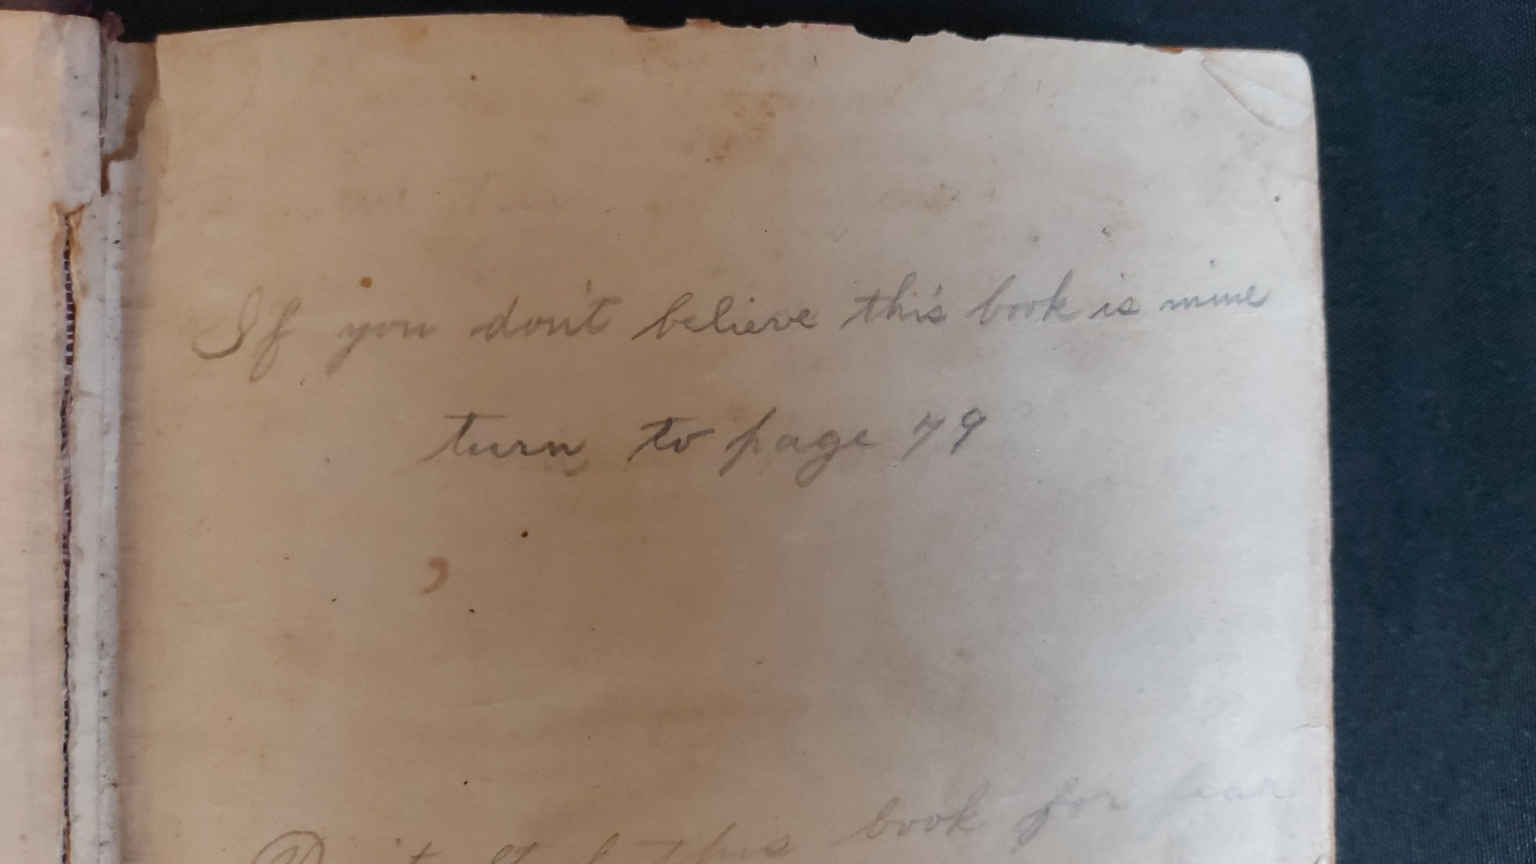 If you don't believe this book is mine
turn to page 79
Don't steal this book for fear